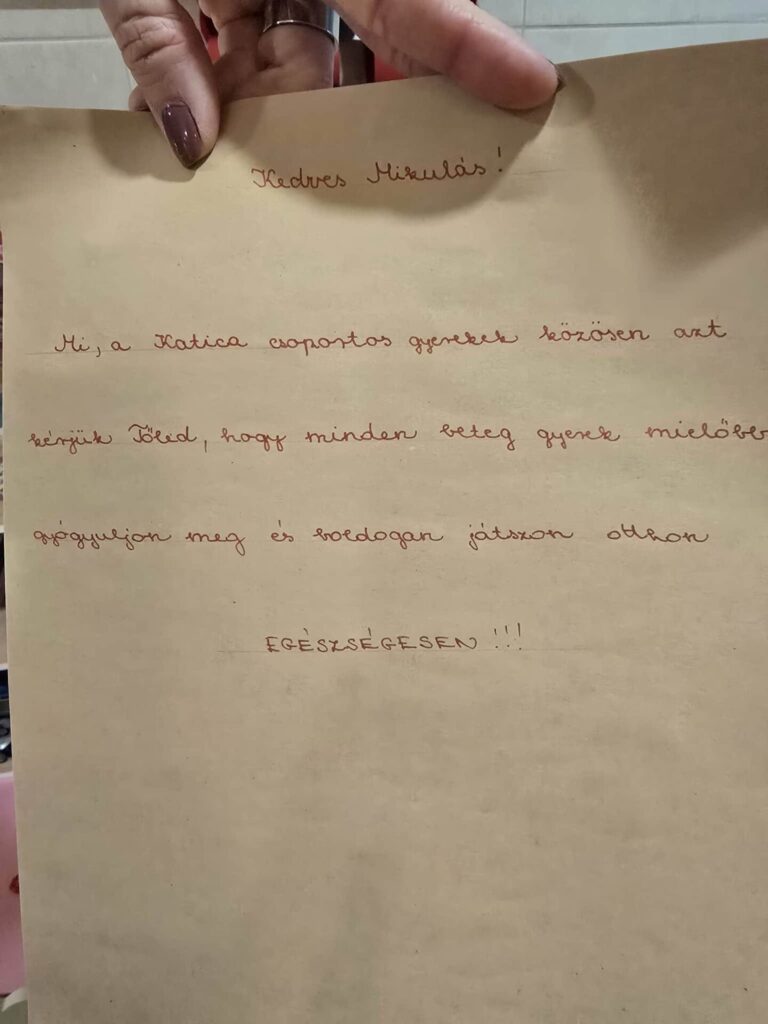 Kedves Mikulás!
Mi, a Katica csoportos gyerekek közösen azt
kérjük Tőled, hogy minden beteg gyerek mielőbb
gyógyuljon meg és boldogan játszon otthon
EGÉSZSÉGESEN!!!